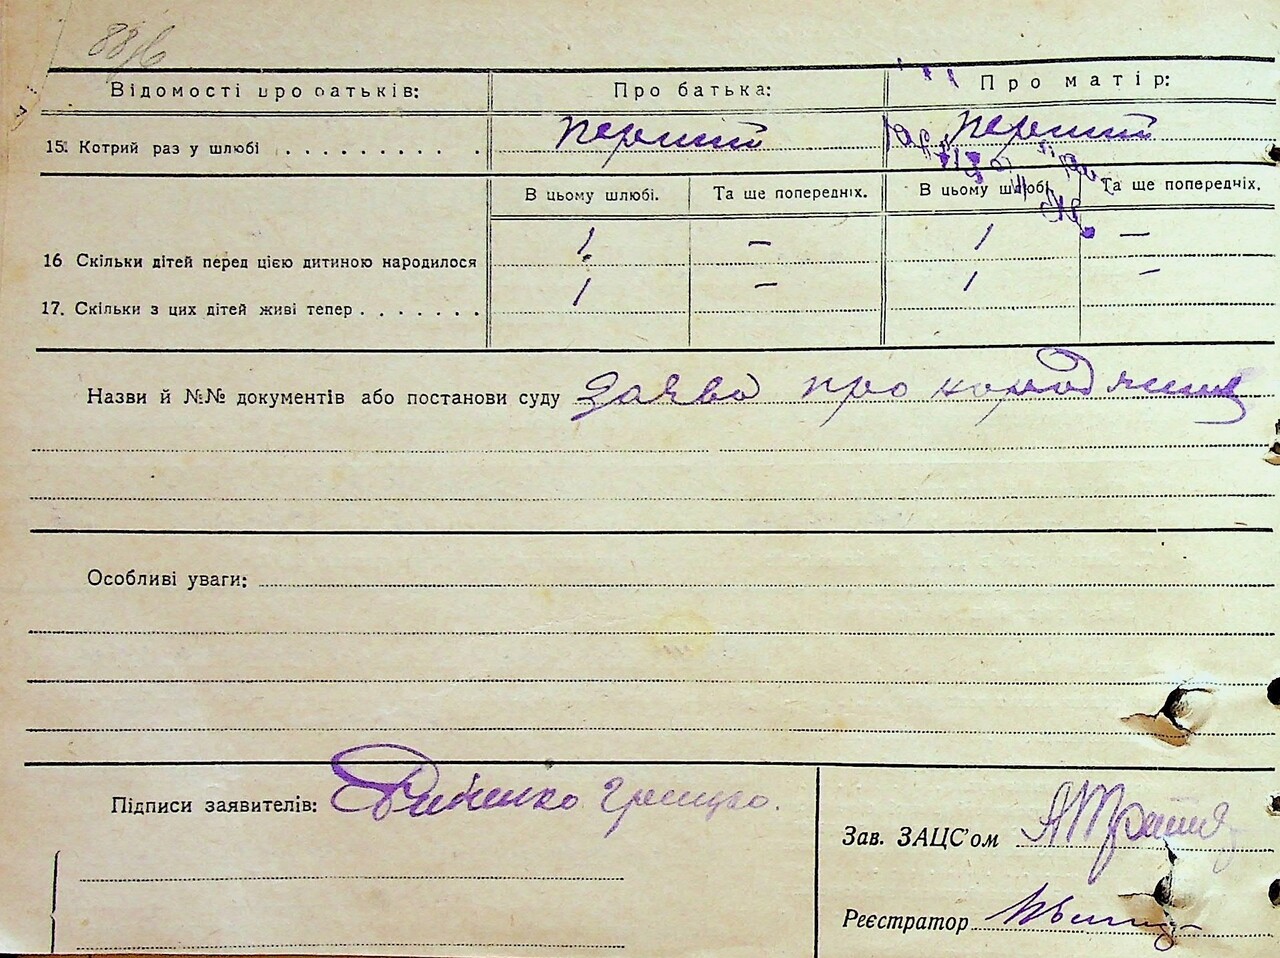 88/6
Відомості про батьків: Про батька: Про матір:
15. Котрий раз у шлюбі . . . . . . . . . . перший перший
В цьому шлюбі. Та ще попередніх. В цьому шлюбі Та ще попередніх.
16 Скільки дітей перед цією дитиною народилося 1 — 1 —
17. Скільки з цих дітей живі тепер . . . . . . . 1 — 1 —
Назви й №№ документів або постанови суду заява про народження
Особливі уваги:
Підписи заявителів: Грицько.
Зав. ЗАЦС'ом
Реєстратор